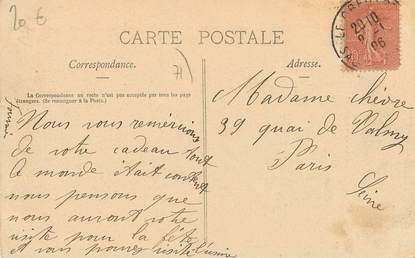 20 €
CARTE POSTALE
Correspondance.
Adresse.
71
La Correspondance au recto n'est pas acceptée par tous les pays
étrangers. (Se renseigner à la Poste.)
20 10
06
Nous vous remercions
de votre cadeau tout
le monde était content
nous pensons que
nous auront votre
visite pour la fête
et vous pourrez visiter l'usine
Madame chèvre
39 quai de Valmy
Paris
Seine